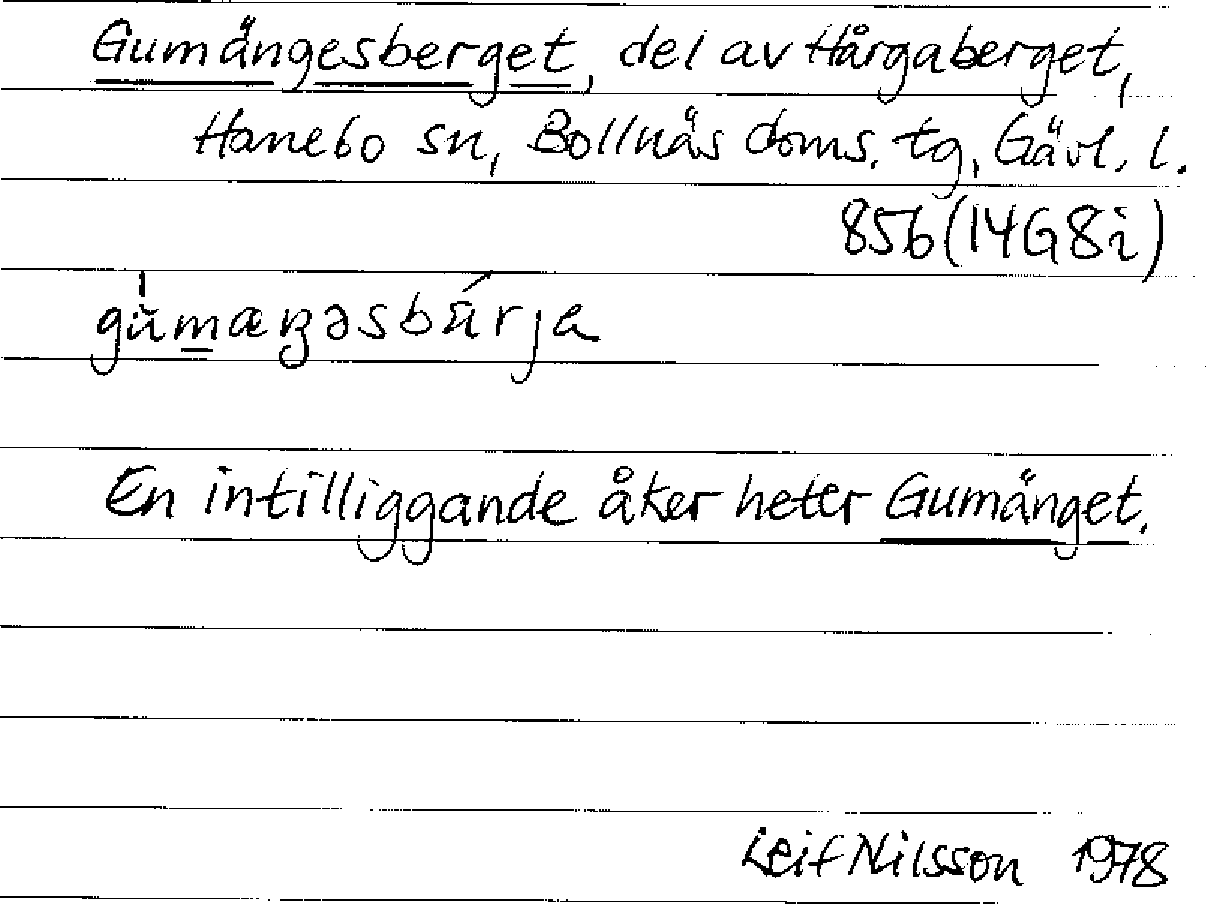 Gumängesberget, del av Hårgaberget,
Hanebo sn, Bollnäs doms. tg, Gävl. l.
856 (14G8i)
En intilliggande åker heter Gumänget.
Leif Nilsson 1978